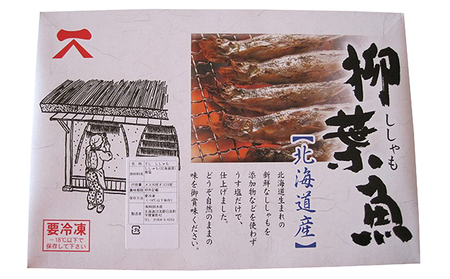 柳葉魚
ししゃも
【北海道産】
北海道生まれの
新鮮なししゃもを
添加物などを使わず
うす塩だけで、
仕上げました。
どうぞ自然のままの
味を御賞味ください。
要冷凍
-18℃以下で
保存して下さい